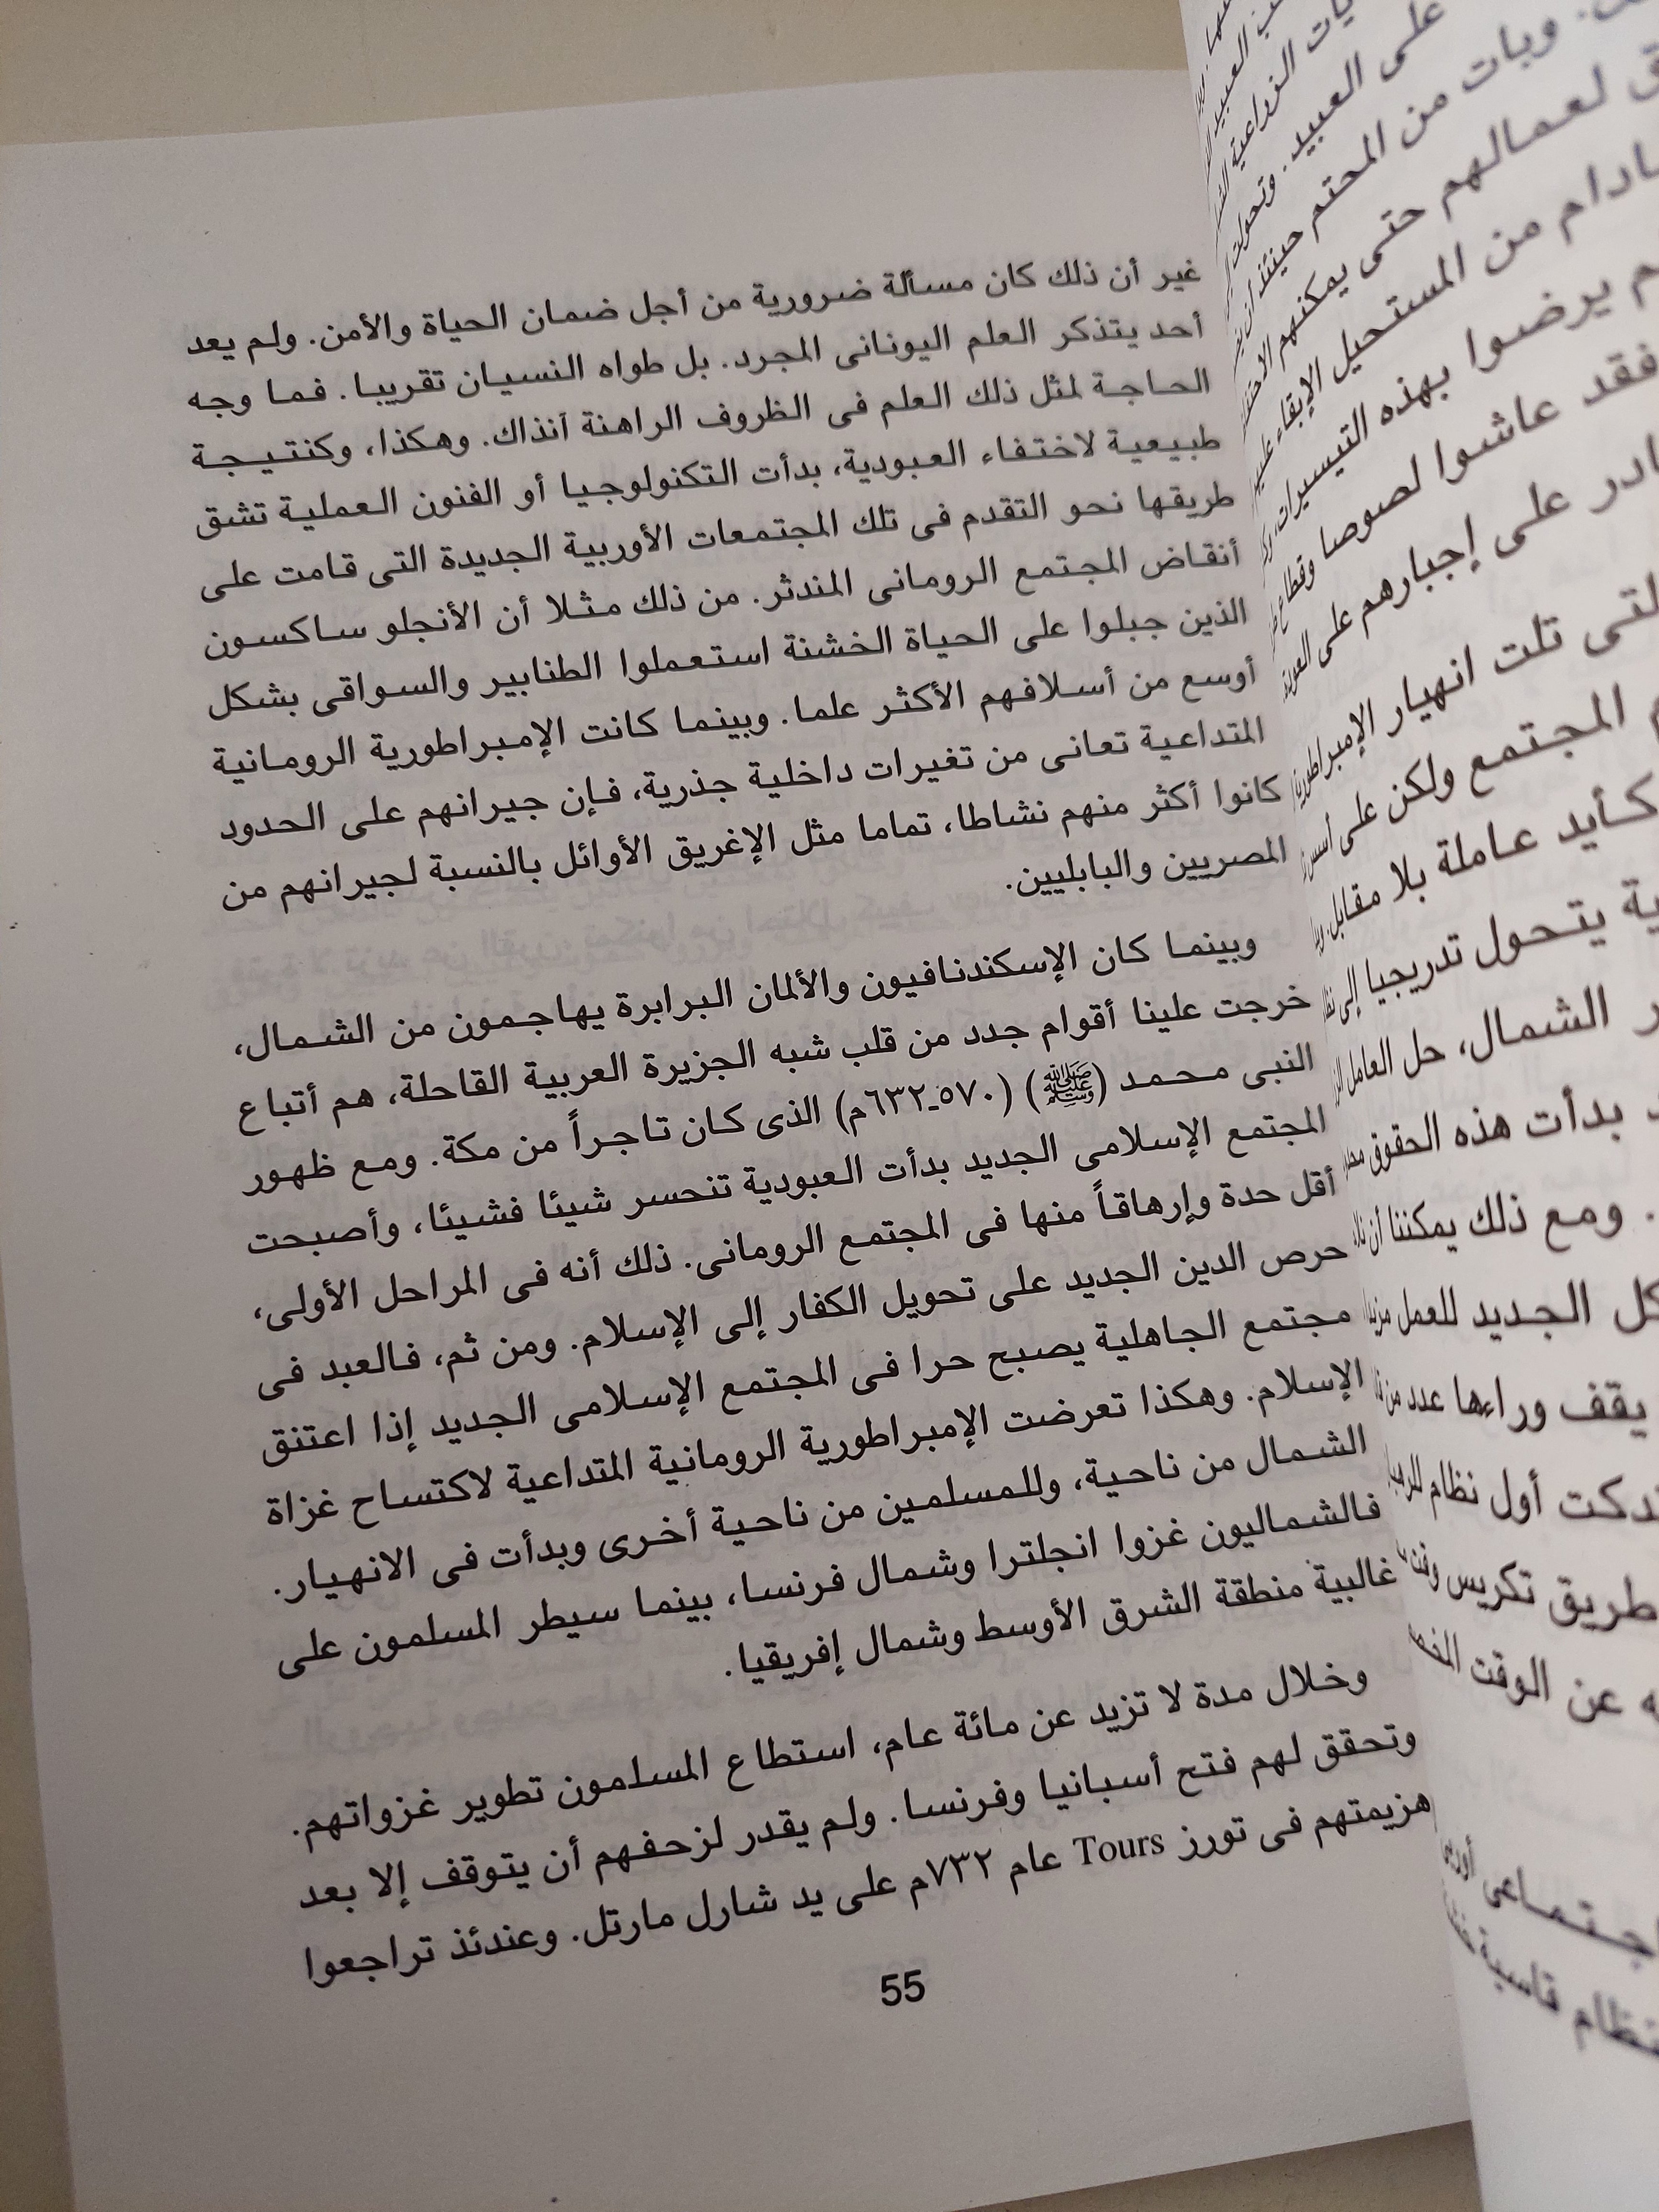 غير أن ذلك كان مسألة ضرورية من أجل ضمان الحياة والأمن. ولم يعد
أحد يتذكر العلم اليونانى المجرد. بل طواه النسيان تقريبا. فما وجه
الحاجة لمثل ذلك العلم فى الظروف الراهنة آنذاك. وهكذا، وكنتيجة
طبيعية لاختفاء العبودية، بدأت التكنولوجيا أو الفنون العملية تشق
طريقها نحو التقدم فى تلك المجتمعات الأوربية الجديدة التى قامت على
أنقاض المجتمع الرومانى المندثر. من ذلك مثلا أن الأنجلو ساكسون
الذين جبلوا على الحياة الخشنة استعملوا الطنابير والسواقى بشكل
أوسع من أسلافهم الأكثر علما. وبينما كانت الإمبراطورية الرومانية
المتداعية تعانى من تغيرات داخلية جذرية، فإن جيرانهم على الحدود
كانوا أكثر منهم نشاطا، تماما مثل الإغريق الأوائل بالنسبة لجيرانهم من
المصريين والبابليين.
وبينما كان الإسكندنافيون والألمان البرابرة يهاجمون من الشمال،
خرجت علينا أقوام جدد من قلب شبه الجزيرة العربية القاحلة، هم أتباع
النبى محمد (ﷺ) (٥٧٠ـ٦٣٢م) الذى كان تاجراً من مكة. ومع ظهور
المجتمع الإسلامى الجديد بدأت العبودية تنحسر شيئا فشيئا، وأصبحت
أقل حدة وإرهاقاً منها فى المجتمع الرومانى. ذلك أنه فى المراحل الأولى،
حرص الدين الجديد على تحويل الكفار إلى الإسلام. ومن ثم، فالعبد فى
مجتمع الجاهلية يصبح حرا فى المجتمع الإسلامى الجديد إذا اعتنق
الإسلام. وهكذا تعرضت الإمبراطورية الرومانية المتداعية لاكتساح غزاة
الشمال من ناحية، وللمسلمين من ناحية أخرى وبدأت فى الانهيار.
فالشماليون غزوا انجلترا وشمال فرنسا، بينما سيطر المسلمون على
غالبية منطقة الشرق الأوسط وشمال إفريقيا.
وخلال مدة لا تزيد عن مائة عام، استطاع المسلمون تطوير غزواتهم.
وتحقق لهم فتح أسبانيا وفرنسا. ولم يقدر لزحفهم أن يتوقف إلا بعد
هزيمتهم فى تورز Tours عام ٧٣٢م على يد شارل مارتل. وعندئذ تراجعوا
55
على العبيد. وتحولت
وبات من المحتم حينئذ
لعمالهم حتى يمكنهم
من المستحيل الإبقاء
يرضوا بهذه التيسيرات
فقد عاشوا لصوصا
على إجبارهم على
تلت انهيار
المجتمع ولكن على أسس
كأيد عاملة بلا مقابل
يتحول تدريجيا إلى
الشمال، حل العامل
بدأت هذه الحقوق
ومع ذلك يمكننا أن
الجديد للعمل
يقف وراءها عدد من
أول نظام
طريق تكريس
عن الوقت